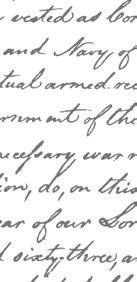 vested as Com
and Navy of
tual armed reb
ernment of the
necessary war m
ion, do, on this
ear of our Lord
d sixty-three, an